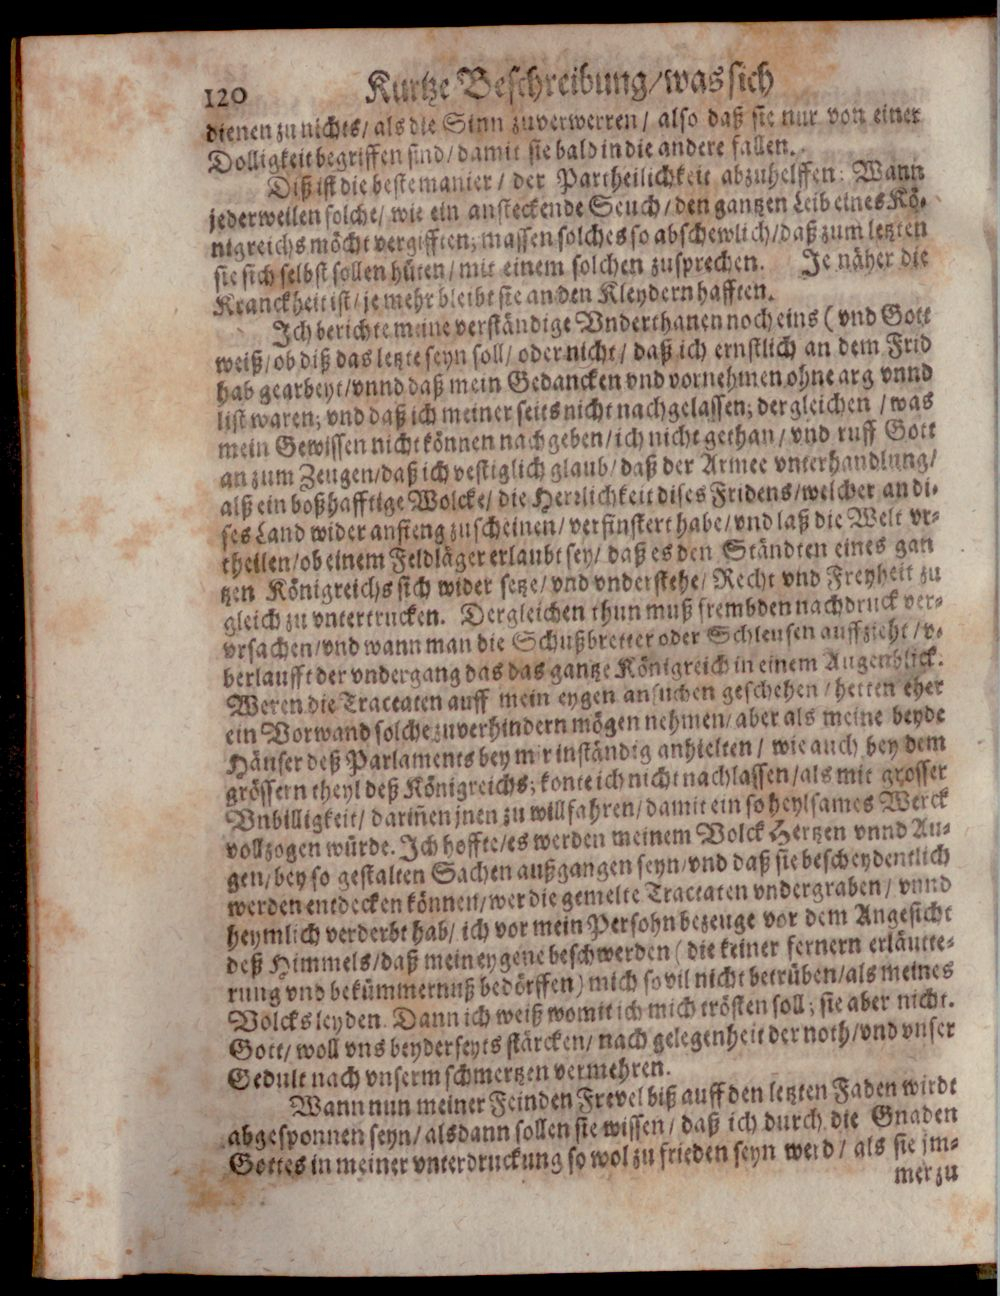 120 Kurtze Beschreibung/was sich
dienen zu nichts/ als die Sinn zuverwerren/ also daß sie nur von einer
Dolligkeit begriffen sind/ damit sie bald in die andere fallen.
Diß ist die beste manier/ der Partheilichkeit abzuhelffen: Wann
jederweilen solche/ wie ein ansteckende Seuch/ den gantzen Leib eines Kö-
nigreichs möcht vergifften; massen solches so abschewlich/ daß zum letzten
sie sich selbst sollen hüten/ mit einem solchen zusprechen. Je näher die
Kranckheit ist/ je mehr bleibt sie an den Kleydern hafften.
Ich berichte meine verständige Vnderthanen noch eins (vnd Gott
weiß/ ob diß das letzte seyn soll/ oder nicht/ daß ich ernstlich an dem Frid
hab gearbeyt/ vnnd daß mein Gedancken vnd vornehmen ohne arg vnnd
list waren; vnd daß ich meiner seits nicht nachgelassen; dergleichen/ was
mein Gewissen nicht können nachgeben/ ich nicht gethan/ vnd ruff Gott
an zum Zeugen/ daß ich vestiglich glaub/ daß der Armee vnterhandlung/
alß ein boßhafftige Wolcke/ die Herrlichkeit dises Fridens/ welcher an di-
ses Land wider anfieng zuscheinen/ verfinstert habe/ vnd laß die Welt vr-
theilen/ ob einem Feldläger erlaubt sey/ daß es den Ständten eines gan
tzen Königreichs sich wider setze/ vnd vnderstehe/ Recht vnd Freyheit zu
gleich zu vntertrucken. Dergleichen thun muß frembden nachdruck ver-
vrsachen/ vnd wann man die Schußbretter oder Schleusen auffzieht/ v-
berlaufft der vndergang das das gantze Königreich in einem Augenblick.
Weren die Tractaten auff mein eygen ansuchen geschehen/ hetten eher
ein Vorwand solche zuverhindern mögen nehmen/ aber als meine beyde
Häuser deß Parlaments bey mir inständig anhielten/ wie auch bey dem
grössern theyl deß Königreichs; konte ich nicht nachlassen/ als mit grosser
Vnbilligkeit/ dariñen jnen zu willfahren/ damit ein so heylsames Werck
vollzogen würde. Ich hoffte/ es werden meinem Volck Hertzen vnnd Au-
gen/ bey so gestalten Sachen außgangen seyn/ vnd daß sie bescheydentlich
werden entdecken können/ wer die gemelte Tractaten vndergraben/ vnnd
heymlich verderbt hab/ ich vor mein Persohn bezeuge vor dem Angesicht
deß Himmels/ daß mein eygene beschwerden (die keiner fernern erläutte-
rung vnd bekümmernuß bedörffen) mich so vil nicht betrüben/ als meines
Volcks leyden. Dann ich weiß womit ich mich trösten soll; sie aber nicht.
Gott/ woll vns beyderseyts stärcken/ nach gelegenheit der noth/ vnd vnser
Gedult nach vnserm schmertzen vermehren.
Wann nun meiner Feinden Frevel biß auff den letzten Faden wirdt
abgesponnen seyn/ alsdann sollen sie wissen/ daß ich durch die Gnaden
Gottes in meiner vnterdruckung so wol zu frieden seyn werd/ als sie jm-
merzu